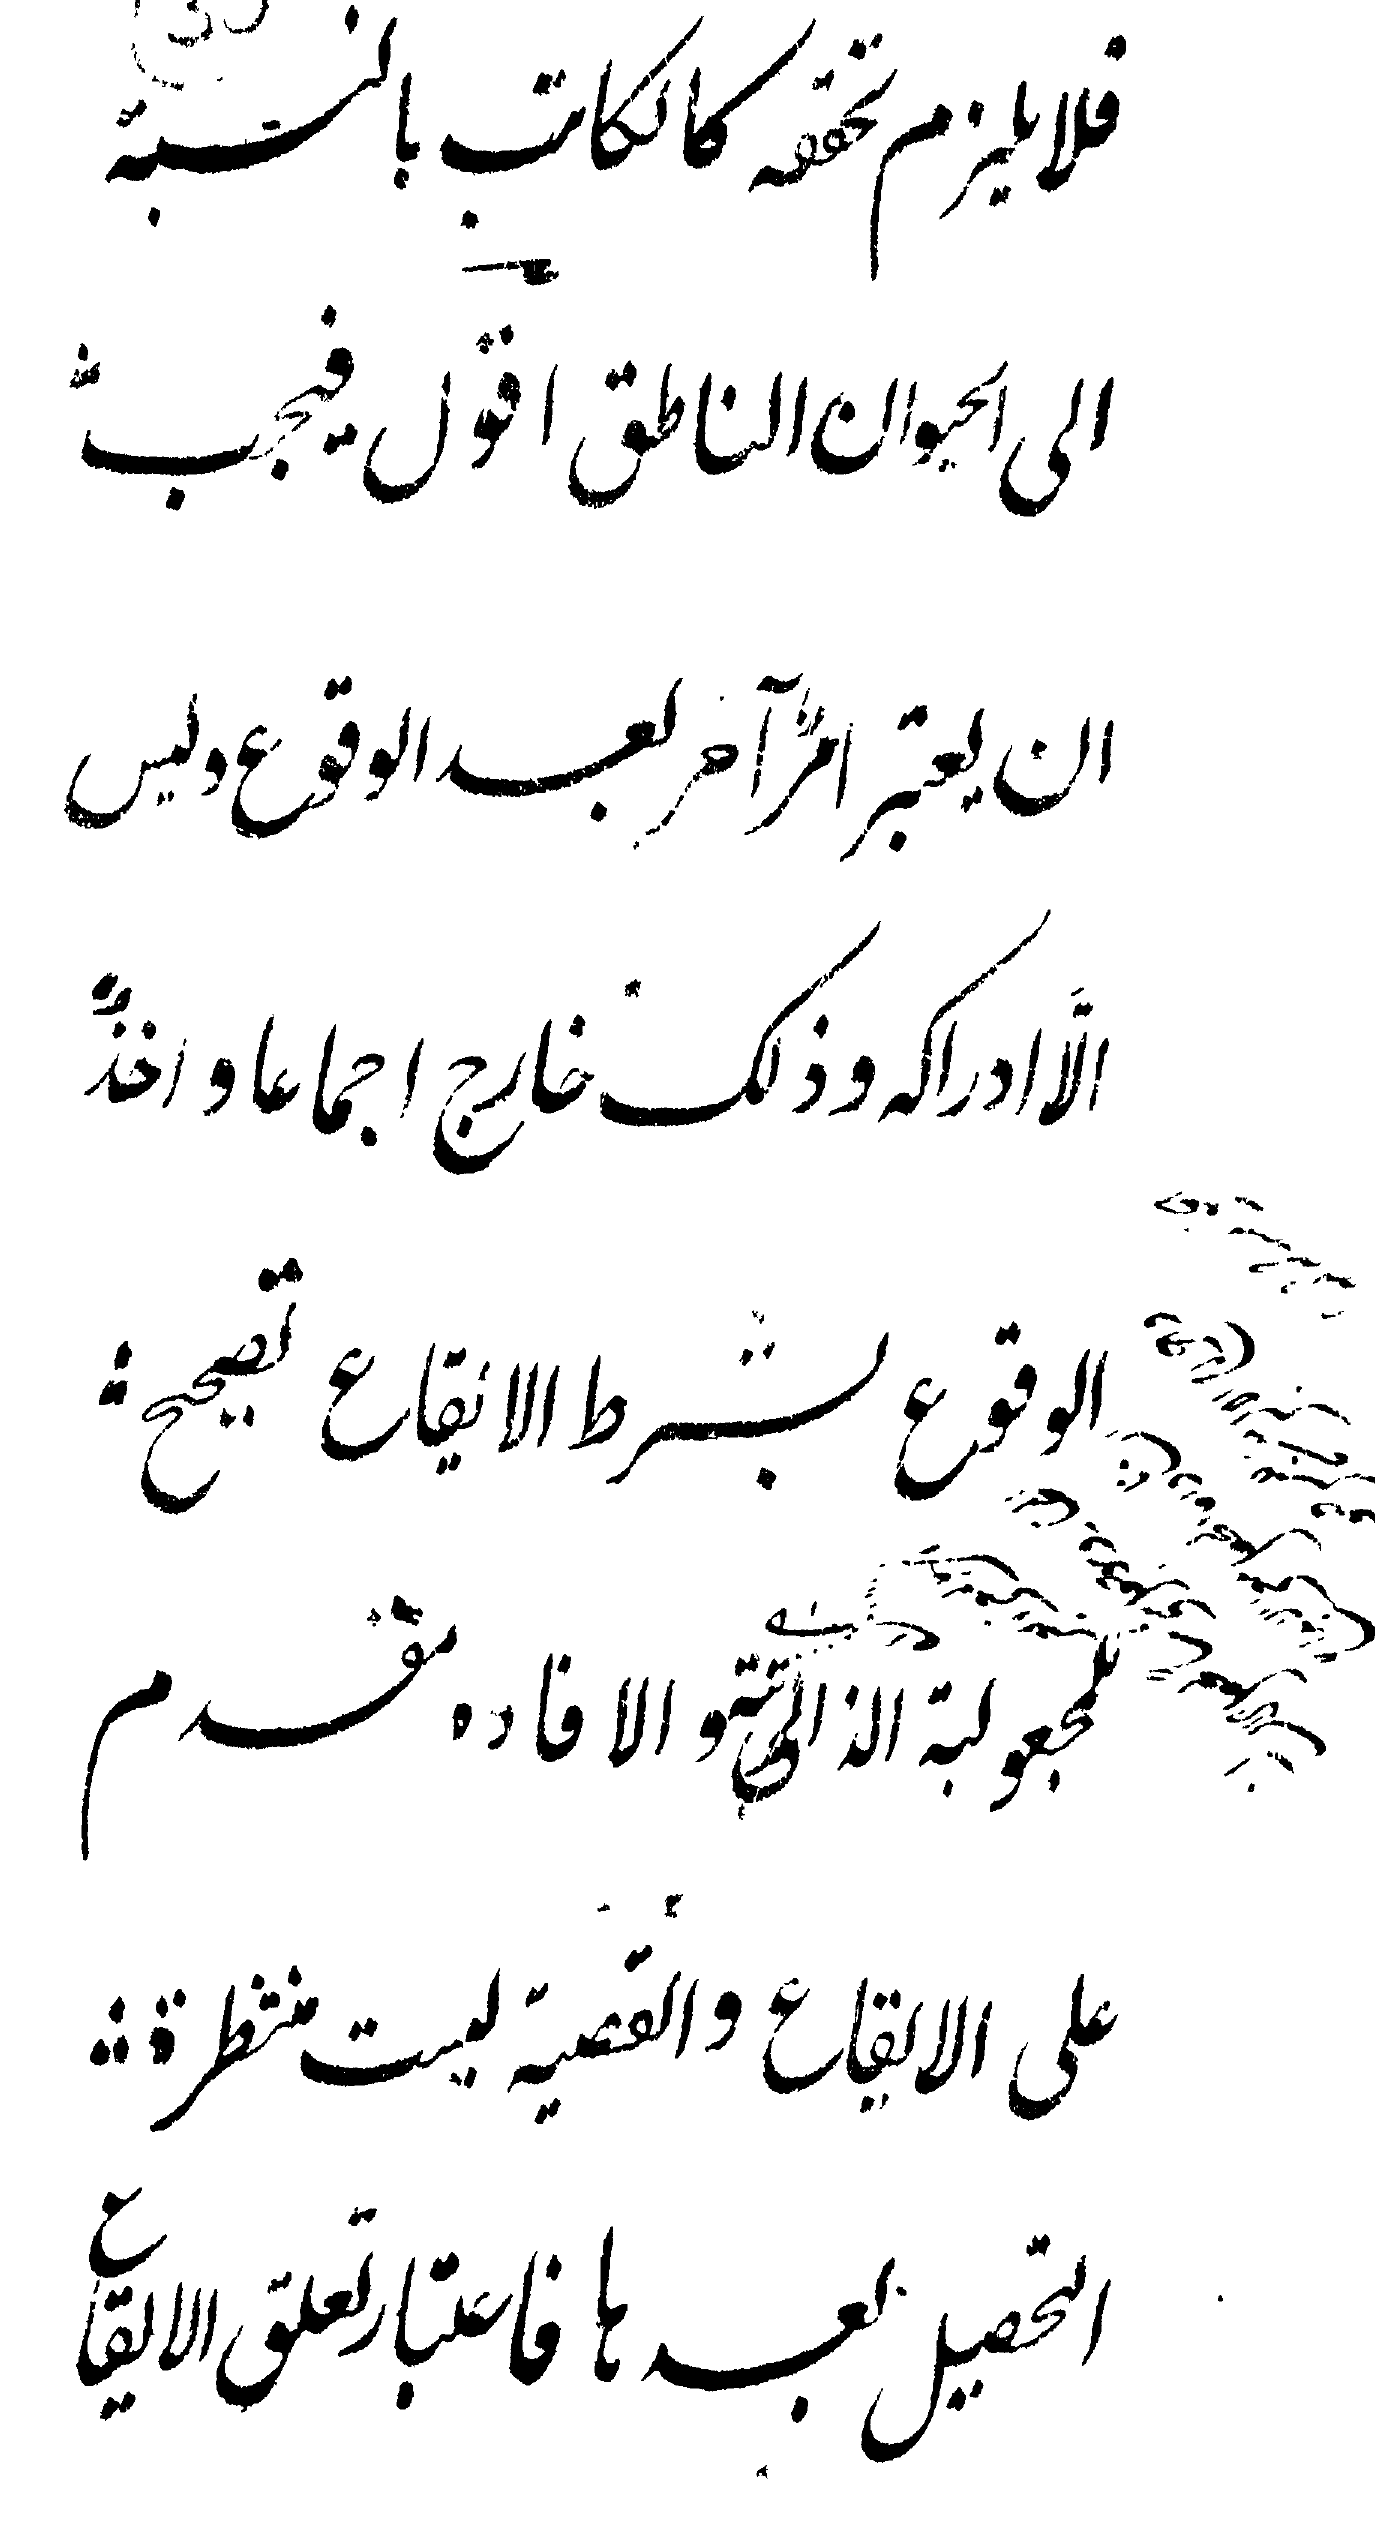 فلا يلزم تحققه كالكاتب بالنسبة
الى الحيوان الناطق اقول فيجب
ان يعتبر امرًا آخر بعد الوقوع وليس
الّا ادراكه وذلك خارج اجماعا و اخذُ
الوقوع بشرط الايقاع تصحيح
للمجعولية الذاتى و الافاده مقدم
على الايقاع والقضية ليست منتظرة
التحصيل بعدها فاعتبار تعلق الايقاع